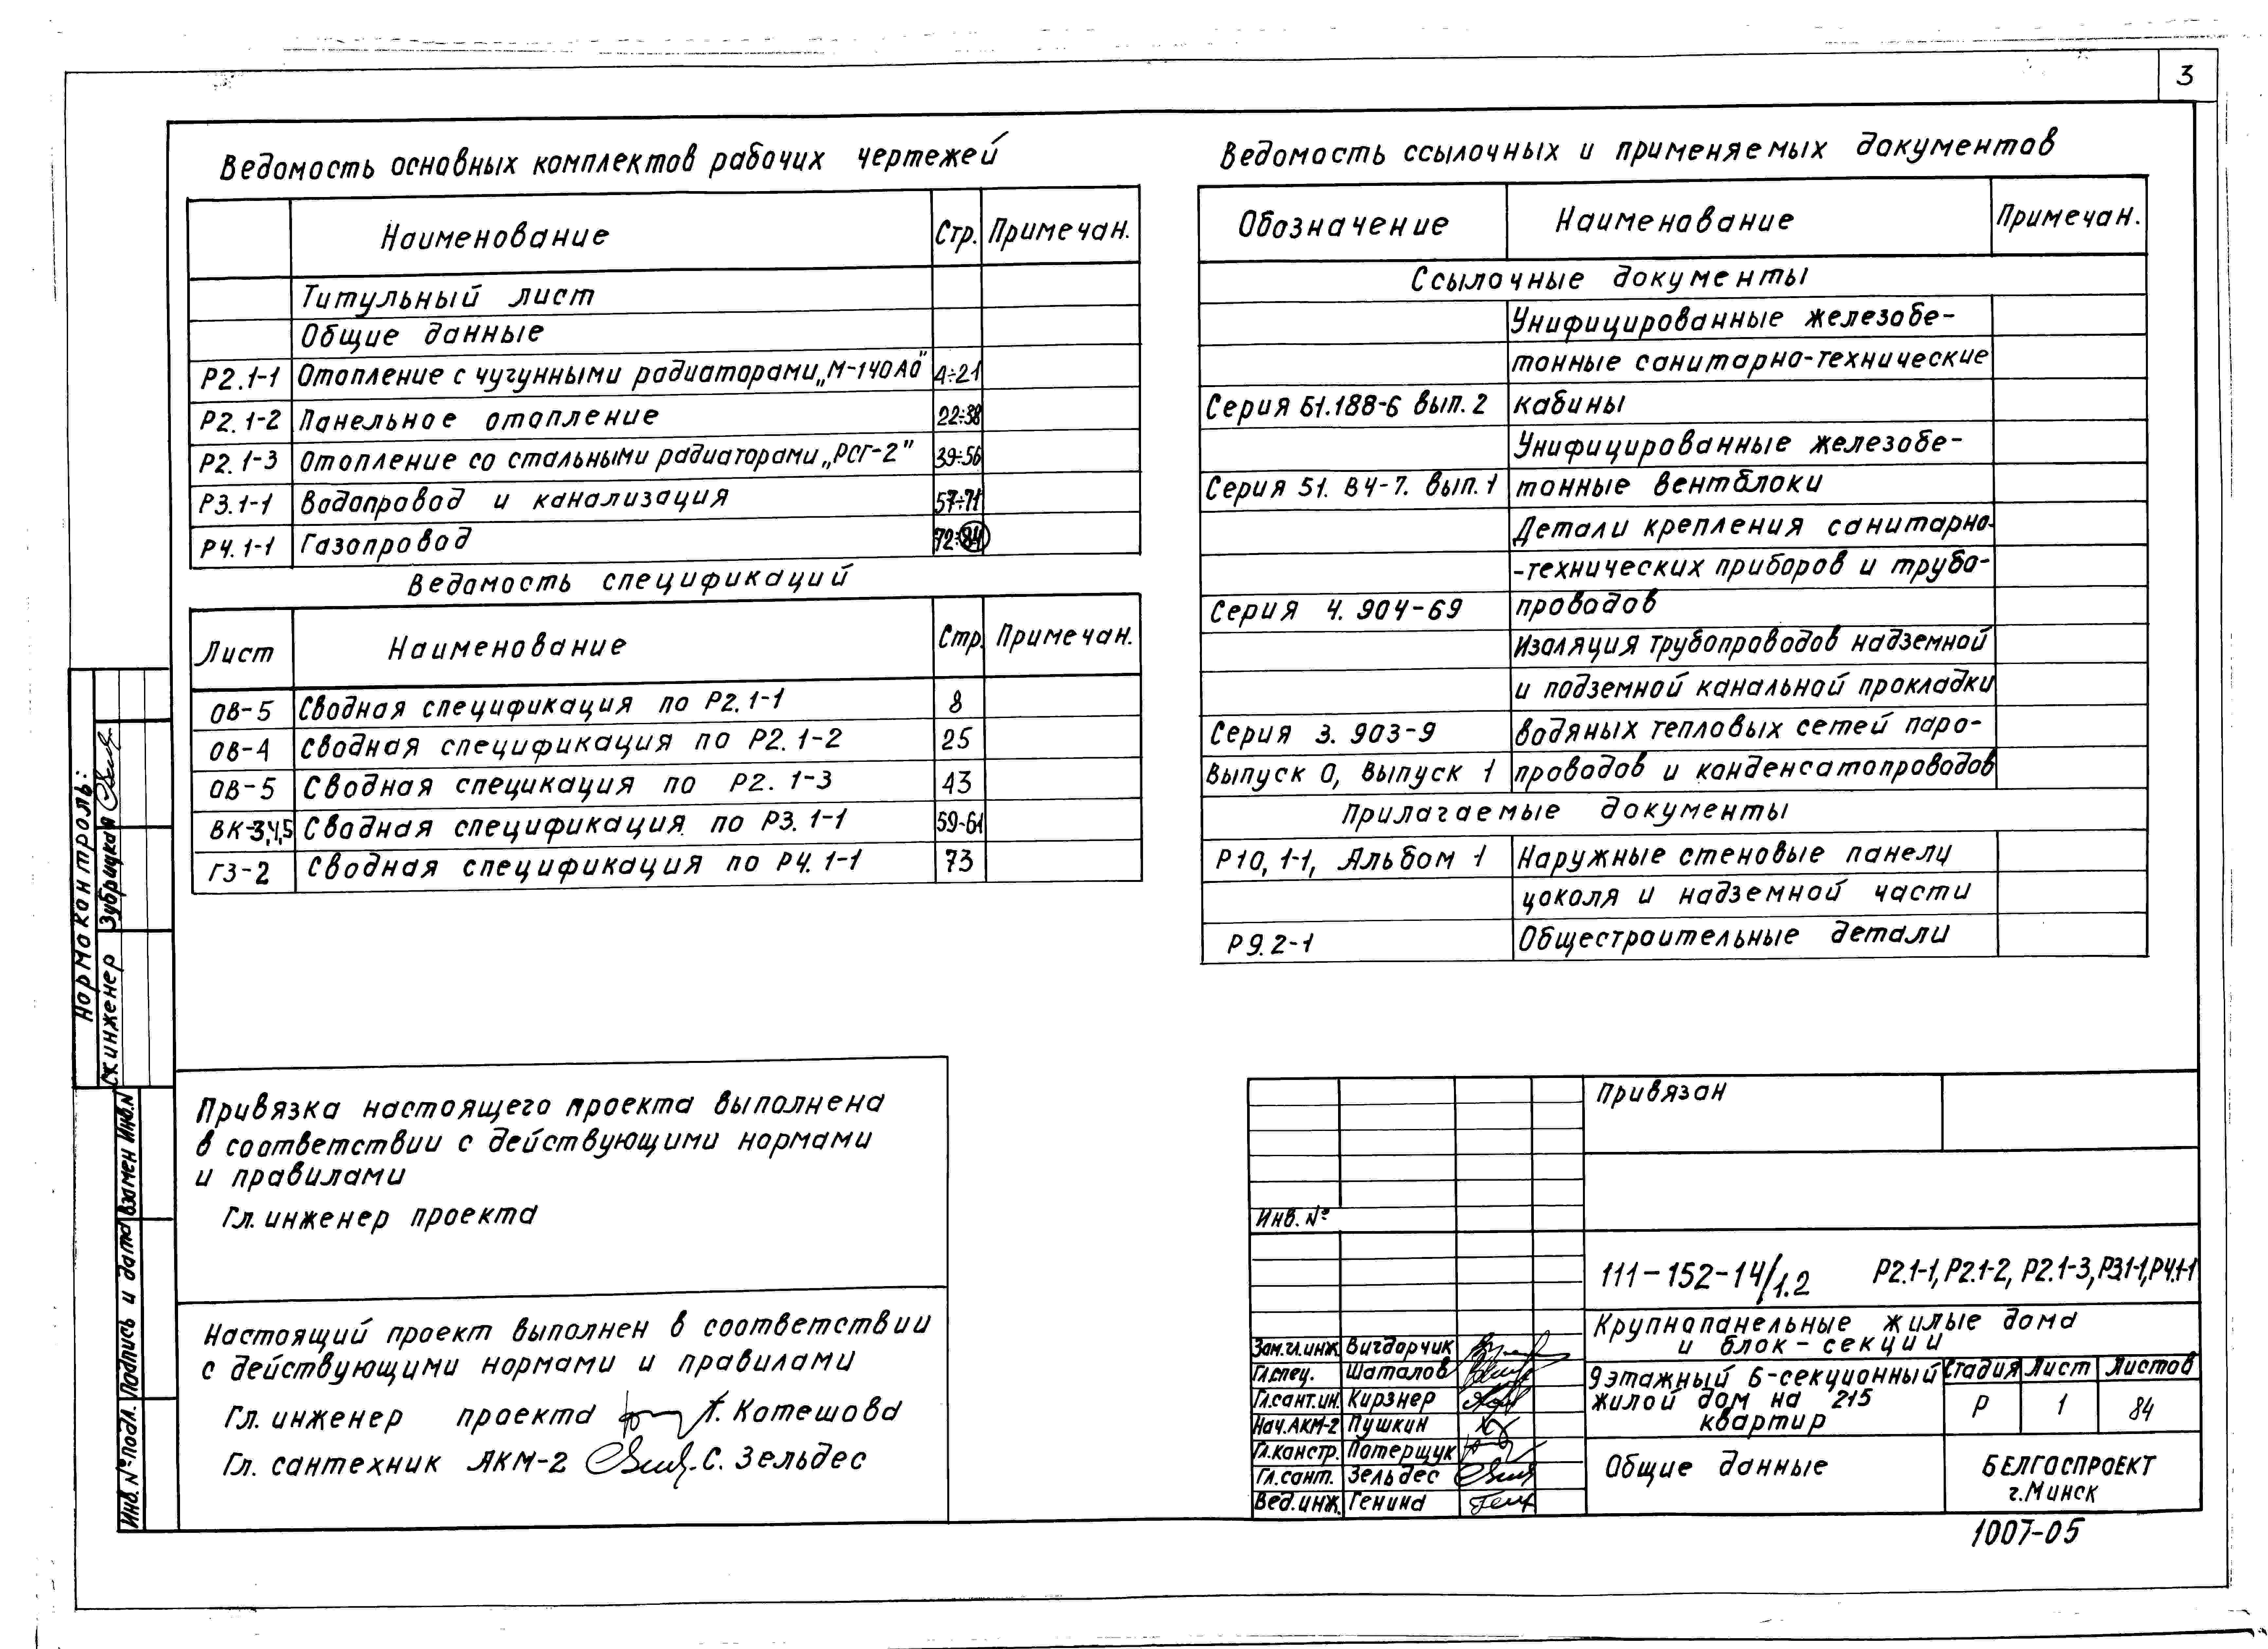 3
Ведомость основных комплектов рабочих чертежей
Наименование Стр. Примечан.
Титульный лист
Общие данные
Р2.1-1 Отопление с чугунными радиаторами „М-140АО" 4÷21
Р2.1-2 Панельное отопление 22÷38
Р2.1-3 Отопление со стальными радиаторами „РСГ-2" 39÷56
Р3.1-1 Водопровод и канализация 57÷71
Р4.1-1 Газопровод 72÷84
Ведомость спецификаций
Лист Наименование Стр. Примечан.
ОВ-5 Сводная спецификация по Р2.1-1 8
ОВ-4 Сводная спецификация по Р2.1-2 25
ОВ-5 Сводная специкация по Р2.1-3 43
ВК-3,4,5 Сводная спецификация по Р3.1-1 59-61
ГЗ-2 Сводная спецификация по Р4.1-1 73
Ведомость ссылочных и применяемых документов
Обозначение Наименование Примечан.
Ссылочные документы
Унифицированные железобе-
тонные санитарно-технические
Серия Б1.188-6 вып.2 кабины
Унифицированные железобе-
Серия Б1.В4-7. вып.1 тонные вентблоки
Детали крепления санитарно-
-технических приборов и трубо-
Серия 4.904-69 проводов
Изоляция трубопроводов надземной
и подземной канальной прокладки
Серия 3.903-9 водяных тепловых сетей паро-
Выпуск 0, Выпуск 1 проводов и конденсатопроводов
Прилагаемые документы
Р10,1-1, Альбом 1 Наружные стеновые панели
цоколя и надземной части
Р9.2-1 Общестроительные детали
Нормоконтроль:
Ск.инженер Зубрицкая
Инв.№подл. Подпись и дата Взамен Инв.N
Привязка настоящего проекта выполнена
в соответствии с действующими нормами
и правилами
Гл. инженер проекта
Настоящий проект выполнен в соответствии
с действующими нормами и правилами
Гл. инженер проекта Г. Котешова
Гл. сантехник АКМ-2 С. Зельдес
Привязан
Инв. №
111-152-14/1.2 Р2.1-1, Р2.1-2, Р2.1-3, Р3.1-1, Р4.1-1
Крупнопанельные жилые дома
и блок-секции
Зам.гл.инж. Вигдорчик
Гл.спец. Шаталов
Гл.сант.ин. Кирзнер
Нач.АКМ-2 Пушкин
Гл.констр. Потерщук
Гл.сант. Зельдес
Вед.инж. Генина
9 этажный 6-секционный
жилой дом на 215
квартир
Стадия Лист Листов
Р 1 84
Общие данные
БЕЛГОСПРОЕКТ
г.Минск
1007-05